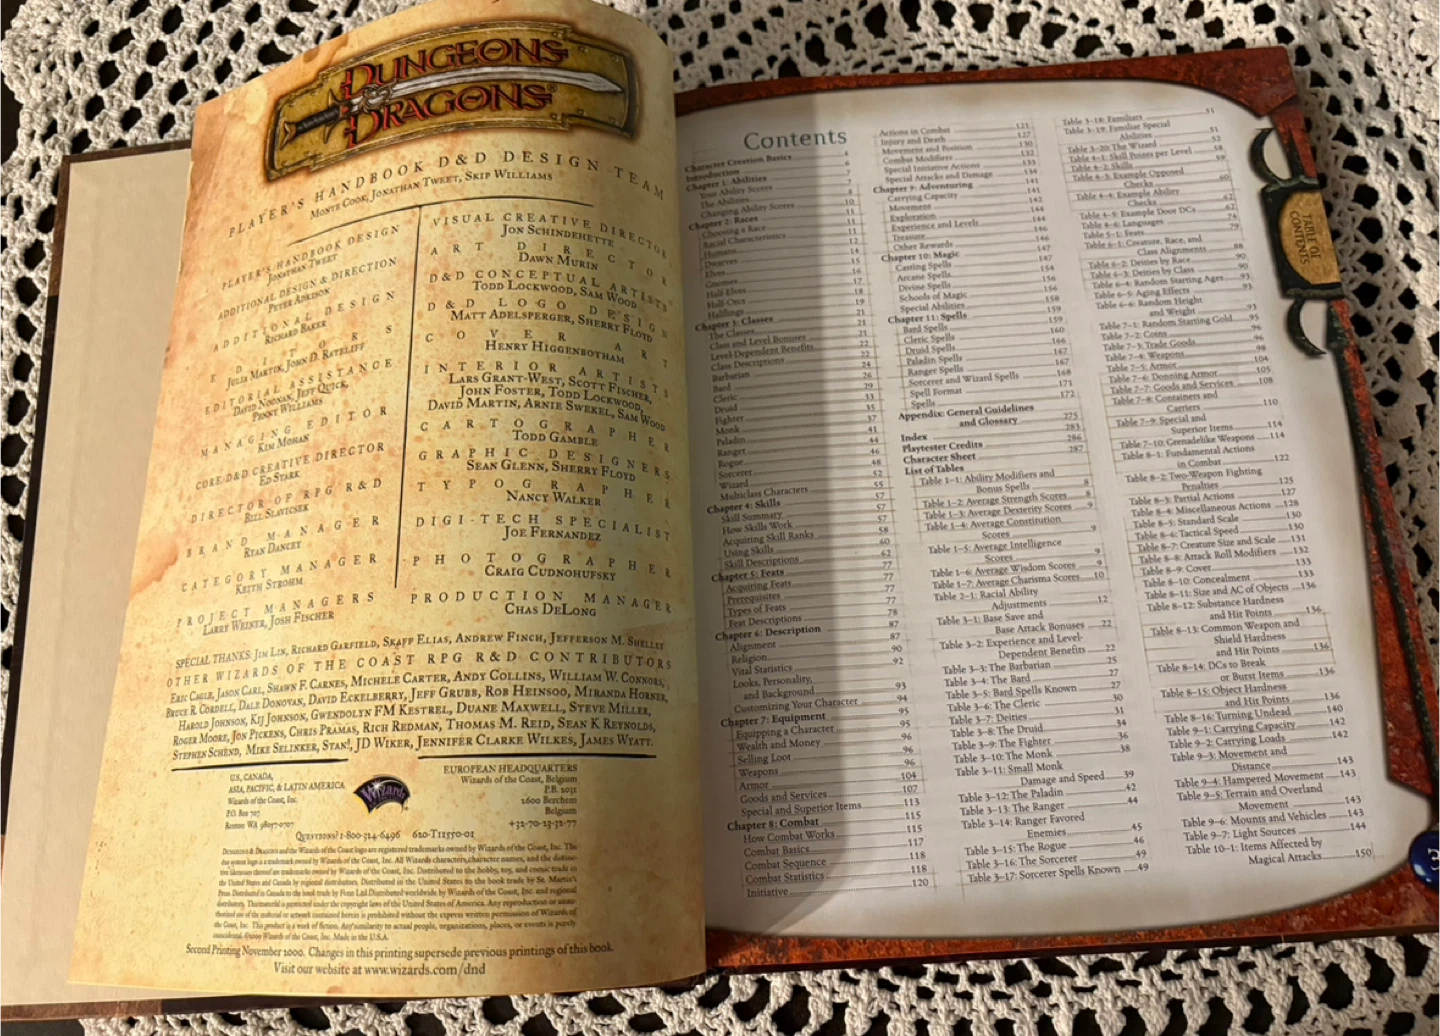 DUNGEONS
& DRAGONS®
PLAYER'S HANDBOOK D&D DESIGN TEAM
MONTE COOK, JONATHAN TWEET, SKIP WILLIAMS
PLAYER'S HANDBOOK DESIGN
JONATHAN TWEET
ADDITIONAL DESIGN & DIRECTION
PETER ADKISON
ADDITIONAL DESIGN
RICHARD BAKER
EDITORS
JULIA MARTIN, JOHN D. RATELIFF
EDITORIAL ASSISTANCE
DAVID NOONAN, JEFF QUICK,
PENNY WILLIAMS
MANAGING EDITOR
KIM MOHAN
CORE D&D CREATIVE DIRECTOR
ED STARK
DIRECTOR OF RPG R&D
BILL SLAVICSEK
BRAND MANAGER
RYAN DANCEY
CATEGORY MANAGER
KEITH STROHM
PROJECT MANAGERS
LARRY WEINER, JOSH FISCHER
VISUAL CREATIVE DIRECTOR
JON SCHINDEHETTE
ART DIRECTOR
DAWN MURIN
D&D CONCEPTUAL ARTISTS
TODD LOCKWOOD, SAM WOOD
D&D LOGO DESIGN
MATT ADELSPERGER, SHERRY FLOYD
COVER ART
HENRY HIGGENBOTHAM
INTERIOR ARTISTS
LARS GRANT-WEST, SCOTT FISCHER,
JOHN FOSTER, TODD LOCKWOOD,
DAVID MARTIN, ARNIE SWEKEL, SAM WOOD
CARTOGRAPHER
TODD GAMBLE
GRAPHIC DESIGNERS
SEAN GLENN, SHERRY FLOYD
TYPOGRAPHER
NANCY WALKER
DIGI-TECH SPECIALIST
JOE FERNANDEZ
PHOTOGRAPHER
CRAIG CUDNOHUFSKY
PRODUCTION MANAGER
CHAS DELONG
SPECIAL THANKS: JIM LIN, RICHARD GARFIELD, SKAFF ELIAS, ANDREW FINCH, JEFFERSON M. SHELLEY
OTHER WIZARDS OF THE COAST RPG R&D CONTRIBUTORS
ERIC CAGLE, JASON CARL, SHAWN F. CARNES, MICHELE CARTER, ANDY COLLINS, WILLIAM W. CONNORS,
BRUCE R. CORDELL, DALE DONOVAN, DAVID ECKELBERRY, JEFF GRUBB, ROB HEINSOO, MIRANDA HORNER,
HAROLD JOHNSON, KIJ JOHNSON, GWENDOLYN FM KESTREL, DUANE MAXWELL, STEVE MILLER,
ROGER MOORE, JON PICKENS, CHRIS PRAMAS, RICH REDMAN, THOMAS M. REID, SEAN K REYNOLDS,
STEPHEN SCHEND, MIKE SELINKER, STAN!, JD WIKER, JENNIFER CLARKE WILKES, JAMES WYATT.
U.S., CANADA,
ASIA, PACIFIC, & LATIN AMERICA
Wizards of the Coast, Inc.
P.O. Box 707
Renton WA 98057-0707
Wizards
EUROPEAN HEADQUARTERS
Wizards of the Coast, Belgium
P.B. 2031
2600 Berchem
Belgium
+32-70-23-32-77
QUESTIONS? 1-800-324-6496 620-T11550-01
DUNGEONS & DRAGONS and the Wizards of the Coast logo are registered trademarks owned by Wizards of the Coast, Inc. The
d20 system logo is a trademark owned by Wizards of the Coast, Inc. All Wizards characters, character names, and the distinc-
tive likenesses thereof are trademarks owned by Wizards of the Coast, Inc. Distributed to the hobby, toy, and comic trade in
the United States and Canada by regional distributors. Distributed in the United States to the book trade by St. Martin's
Press. Distributed in Canada to the book trade by Fenn Ltd. Distributed worldwide by Wizards of the Coast, Inc. and regional
distributors. This material is protected under the copyright laws of the United States of America. Any reproduction or unau-
thorized use of the material or artwork contained herein is prohibited without the express written permission of Wizards of
the Coast, Inc. This product is a work of fiction. Any similarity to actual people, organizations, places, or events is purely
coincidental. ©2000 Wizards of the Coast, Inc. Made in the U.S.A.
Second Printing November 2000. Changes in this printing supersede previous printings of this book.
Visit our website at www.wizards.com/dnd
Contents
Character Creation Basics 4
Introduction 6
Chapter 1: Abilities 7
Your Ability Scores 7
The Abilities 8
Changing Ability Scores 10
Chapter 2: Races 11
Choosing a Race 11
Racial Characteristics 11
Humans 12
Dwarves 14
Elves 15
Gnomes 16
Half-Elves 17
Half-Orcs 18
Halflings 19
Chapter 3: Classes 21
The Classes 21
Class and Level Bonuses 21
Level-Dependent Benefits 22
Class Descriptions 22
Barbarian 24
Bard 26
Cleric 29
Druid 33
Fighter 35
Monk 37
Paladin 41
Ranger 44
Rogue 46
Sorcerer 48
Wizard 52
Multiclass Characters 55
Chapter 4: Skills 57
Skill Summary 57
How Skills Work 57
Acquiring Skill Ranks 58
Using Skills 60
Skill Descriptions 62
Chapter 5: Feats 77
Acquiring Feats 77
Prerequisites 77
Types of Feats 77
Feat Descriptions 78
Chapter 6: Description 87
Alignment 87
Religion 90
Vital Statistics 92
Looks, Personality,
and Background 93
Customizing Your Character 94
Chapter 7: Equipment 95
Equipping a Character 95
Wealth and Money 96
Selling Loot 96
Weapons 96
Armor 104
Goods and Services 107
Special and Superior Items 113
Chapter 8: Combat 115
How Combat Works 115
Combat Basics 117
Combat Sequence 118
Combat Statistics 118
Initiative 120
Actions in Combat 121
Injury and Death 127
Movement and Position 130
Combat Modifiers 132
Special Initiative Actions 133
Special Attacks and Damage 134
Chapter 9: Adventuring 141
Carrying Capacity 141
Movement 142
Exploration 144
Experience and Levels 144
Treasure 146
Other Rewards 146
Chapter 10: Magic 147
Casting Spells 147
Arcane Spells 154
Divine Spells 156
Schools of Magic 156
Special Abilities 158
Chapter 11: Spells 159
Bard Spells 159
Cleric Spells 160
Druid Spells 166
Paladin Spells 167
Ranger Spells 167
Sorcerer and Wizard Spells 168
Spell Format 171
Spells 172
Appendix: General Guidelines
and Glossary 275
Index 283
Playtester Credits 286
Character Sheet 287
List of Tables
Table 1–1: Ability Modifiers and
Bonus Spells 8
Table 1–2: Average Strength Scores 8
Table 1–3: Average Dexterity Scores 9
Table 1–4: Average Constitution
Scores 9
Table 1–5: Average Intelligence
Scores 9
Table 1–6: Average Wisdom Scores 9
Table 1–7: Average Charisma Scores 10
Table 2–1: Racial Ability
Adjustments 12
Table 3–1: Base Save and
Base Attack Bonuses 22
Table 3–2: Experience and Level-
Dependent Benefits 22
Table 3–3: The Barbarian 25
Table 3–4: The Bard 27
Table 3–5: Bard Spells Known 27
Table 3–6: The Cleric 30
Table 3–7: Deities 31
Table 3–8: The Druid 34
Table 3–9: The Fighter 36
Table 3–10: The Monk 38
Table 3–11: Small Monk
Damage and Speed 39
Table 3–12: The Paladin 42
Table 3–13: The Ranger 44
Table 3–14: Ranger Favored
Enemies 45
Table 3–15: The Rogue 46
Table 3–16: The Sorcerer 49
Table 3–17: Sorcerer Spells Known 49
Table 3–18: Familiars 51
Table 3–19: Familiar Special
Abilities 51
Table 3–20: The Wizard 52
Table 4–1: Skill Points per Level 58
Table 4–2: Skills 59
Table 4–3: Example Opposed
Checks 60
Table 4–4: Example Ability
Checks 62
Table 4–5: Example Door DCs 62
Table 4–6: Languages 74
Table 5–1: Feats 79
Table 6–1: Creature, Race, and
Class Alignments 88
Table 6–2: Deities by Race 90
Table 6–3: Deities by Class 90
Table 6–4: Random Starting Ages 93
Table 6–5: Aging Effects 93
Table 6–6: Random Height
and Weight 93
Table 7–1: Random Starting Gold 95
Table 7–2: Coins 96
Table 7–3: Trade Goods 96
Table 7–4: Weapons 98
Table 7–5: Armor 104
Table 7–6: Donning Armor 105
Table 7–7: Goods and Services 108
Table 7–8: Containers and
Carriers 110
Table 7–9: Special and
Superior Items 114
Table 7–10: Grenadelike Weapons 114
Table 8–1: Fundamental Actions
in Combat 122
Table 8–2: Two-Weapon Fighting
Penalties 125
Table 8–3: Partial Actions 127
Table 8–4: Miscellaneous Actions 128
Table 8–5: Standard Scale 130
Table 8–6: Tactical Speed 130
Table 8–7: Creature Size and Scale 131
Table 8–8: Attack Roll Modifiers 132
Table 8–9: Cover 133
Table 8–10: Concealment 133
Table 8–11: Size and AC of Objects 136
Table 8–12: Substance Hardness
and Hit Points 136
Table 8–13: Common Weapon and
Shield Hardness
and Hit Points 136
Table 8–14: DCs to Break
or Burst Items 136
Table 8–15: Object Hardness
and Hit Points 136
Table 8–16: Turning Undead 140
Table 9–1: Carrying Capacity 142
Table 9–2: Carrying Loads 142
Table 9–3: Movement and
Distance 143
Table 9–4: Hampered Movement 143
Table 9–5: Terrain and Overland
Movement 143
Table 9–6: Mounts and Vehicles 143
Table 9–7: Light Sources 144
Table 10–1: Items Affected by
Magical Attacks 150
TABLE OF
CONTENTS
3